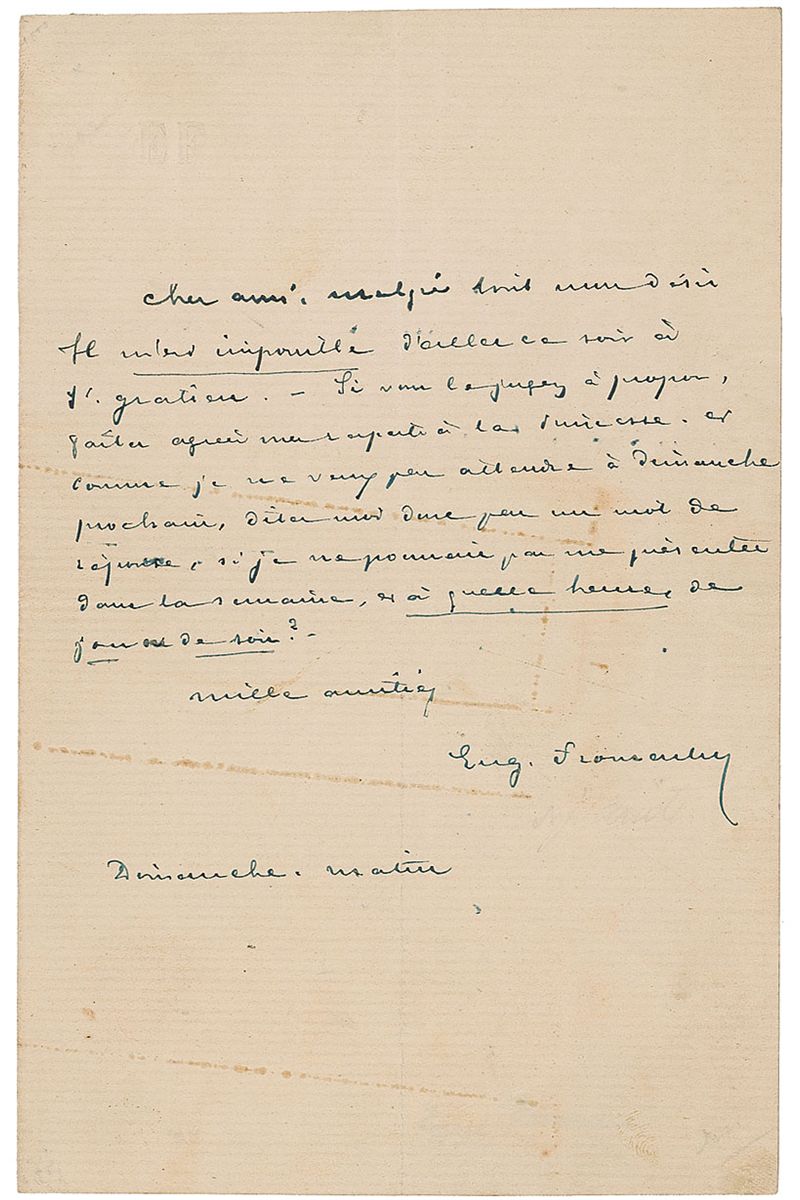 Cher ami, malgré tout mon désir
Il m'est impossible d'aller ce soir à
St. gratien. — Si vous le jugez à propos,
faites agréer mes respects à la Princesse. et
comme je ne veux pas attendre à Dimanche
prochain, dites moi donc par un mot de
réponse, si je ne pourrais pas me présenter
dans la semaine, et à quelle heure, de
jour ou de soir ? —
mille amitiés
Eug. Fromentin
Dimanche. matin